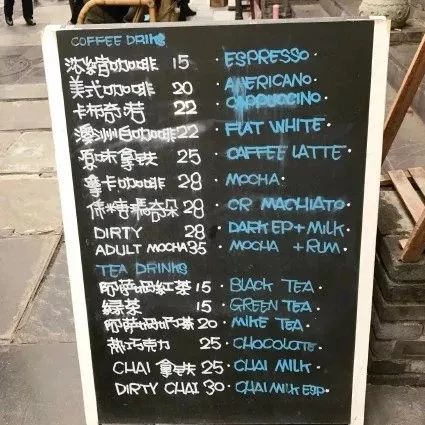 COFFEE DRINKS
浓缩咖啡 15 · ESPRESSO ·
美式咖啡 20 · AMERICANO ·
卡布奇诺 22 · CAPPUCCINO ·
澳洲白咖啡 22 · FLAT WHITE ·
拿铁 25 · CAFFEE LATTE ·
拿卡咖啡 28 · MOCHA ·
焦糖玛奇朵 28 · CR MACHIATO ·
DIRTY 28 · DARK EP + MILK ·
ADULT MOCHA 35 · MOCHA + RUM ·
TEA DRINKS
阿萨姆紅茶 15 · BLACK TEA ·
緑茶 15 · GREEN TEA ·
阿萨姆奶茶 20 · MIKE TEA ·
热巧克力 25 · CHOCOLATE ·
CHAI 拿铁 25 · CHAI MILK ·
DIRTY CHAI 30 · CHAI MILK ESP ·